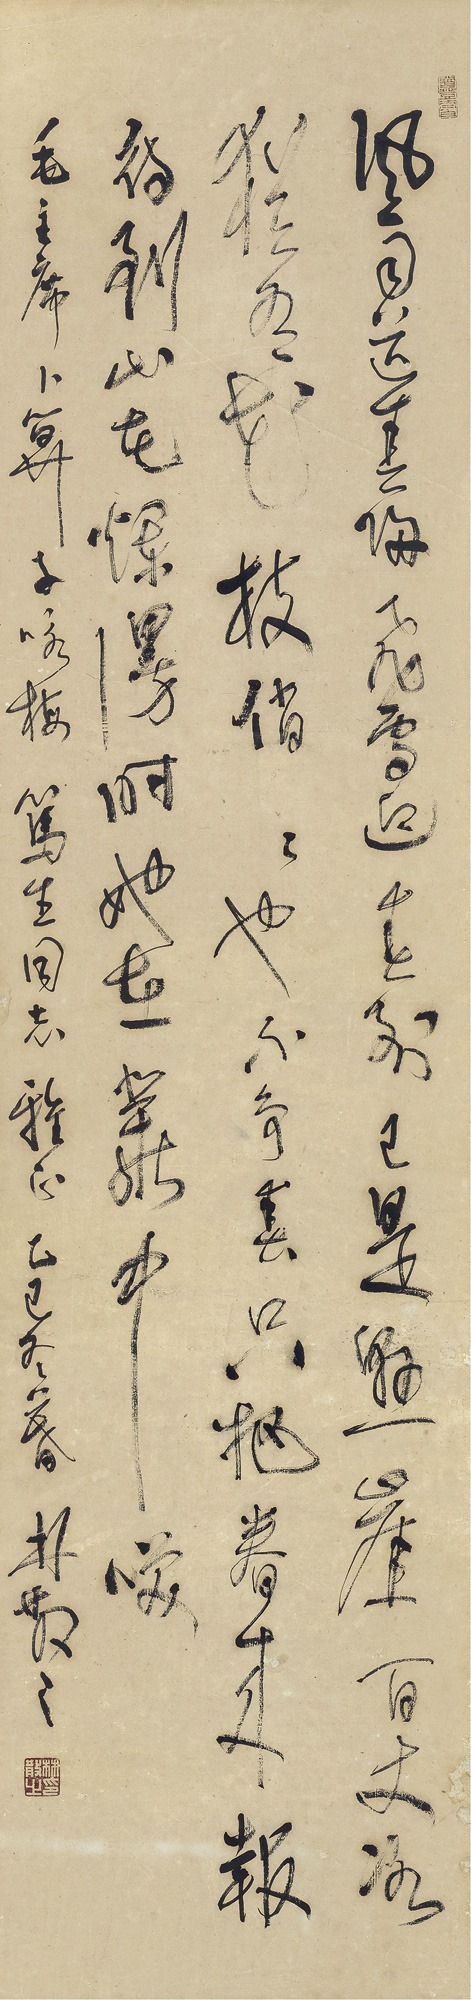 風雨送春歸飛雪迎春到已是懸崖百丈冰
猶有花枝俏〻也不爭春只把春來報
待到山花爛漫時她在叢中笑
毛主席卜算子詠梅 篤生同志雅正 乙巳冬暮 林散之
林散之印